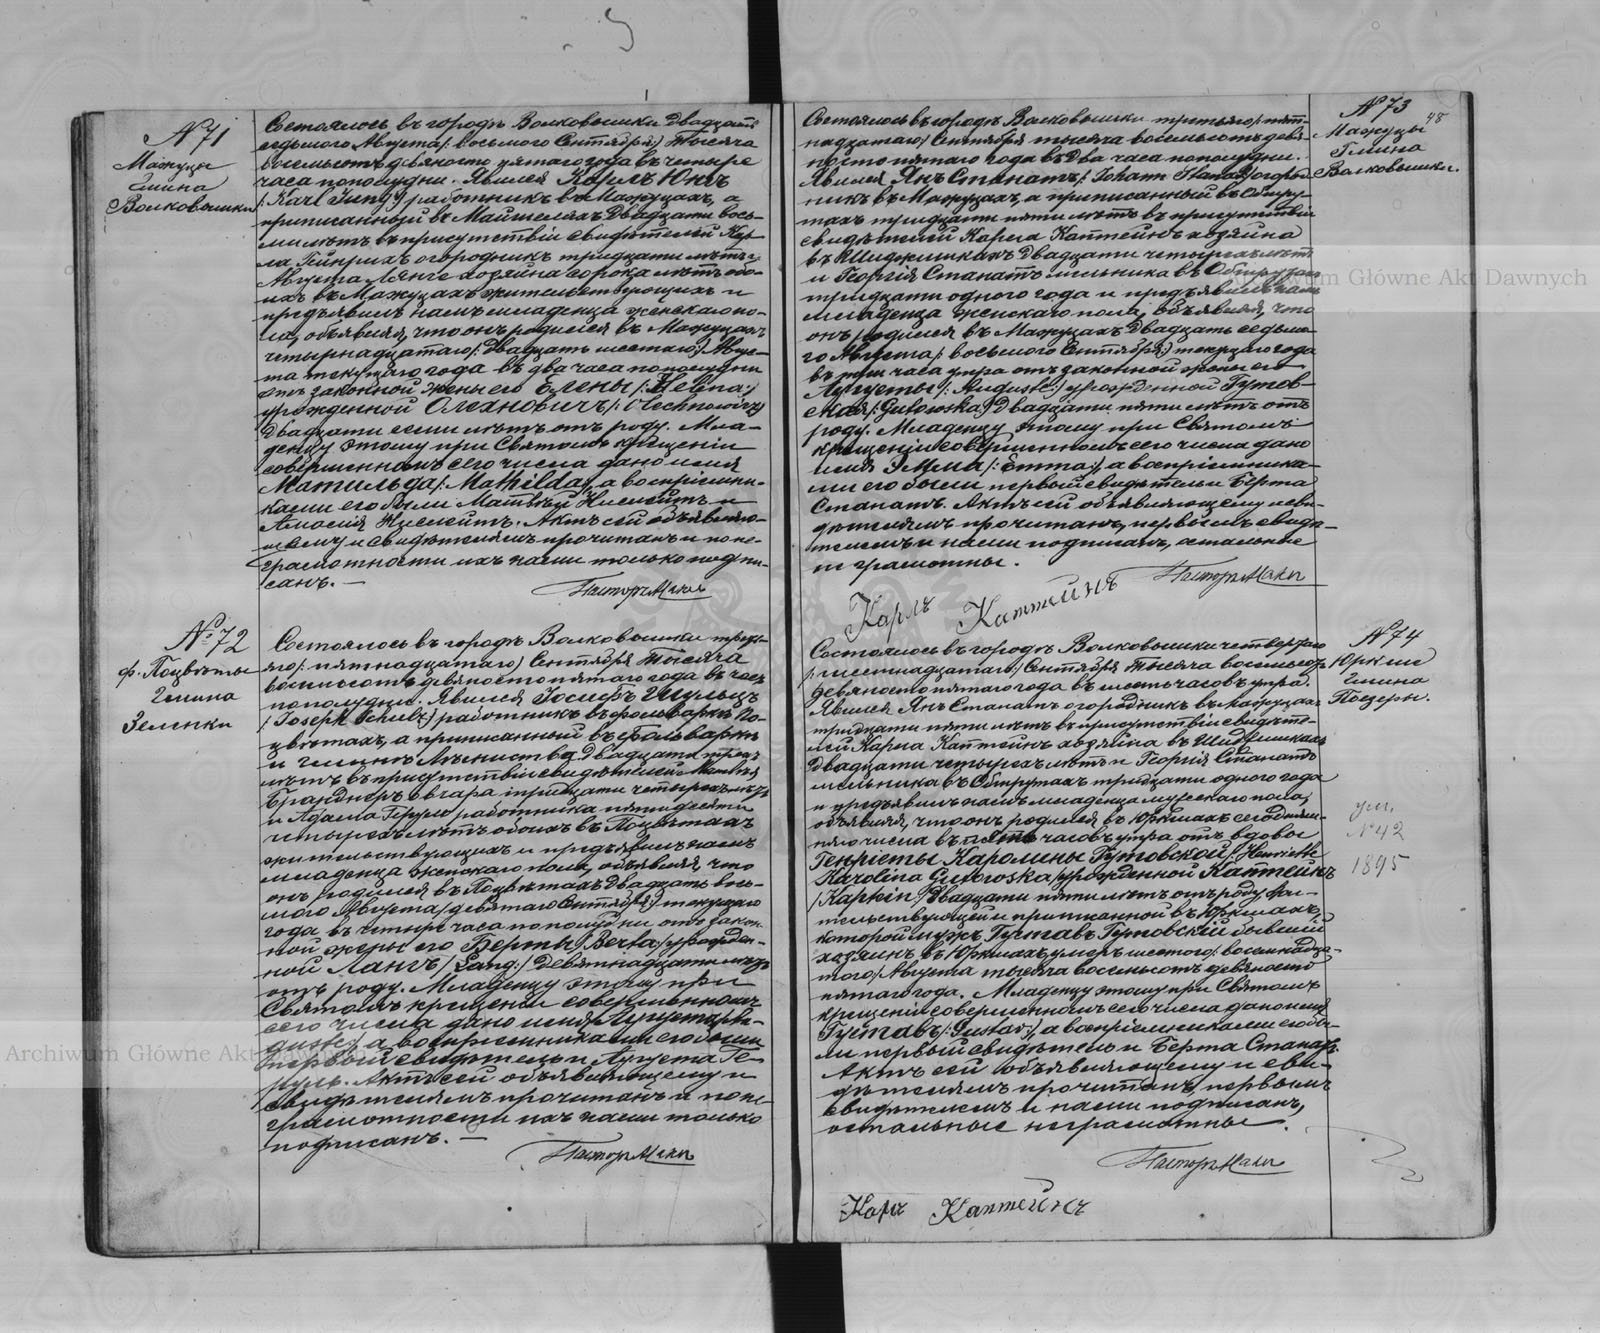 № 71
Мажуцы
Гмина
Волковышки
Состоялось въ городѣ Волковышки двадцать
седьмого Августа /: восьмого Сентября :/ тысяча
восемьсотъ девяносто пятаго года въ четыре
часа пополудни. Явился Карлъ Юнгъ
/: Karl Jung :/ работникъ въ Мажуцахъ, а
приписанный въ двадцати вось-
ми лѣтъ въ присутствіи свидѣтелей Кар-
ла Гейнрихъ огородникъ тридцати лѣтъ и
Августа Лянге хозяина сорока лѣтъ обо-
ихъ въ Мажуцахъ жительствующихъ и
предъявилъ намъ младенца женскаго по-
ла, объявляя, что онъ родился въ Мажуцахъ
четырнадцатаго /: двадцать шестаго :/ Авгус-
та текущаго года въ два часа пополудни
отъ законной жены его Елены /: Helena :/
урожденной Олехновичъ /: Olechnowicz :/
двадцати семи лѣтъ отъ роду. Мла-
денцу этому при Святомъ крещеніи
совершенномъ сего числа дано имя
Матильда /: Mathilda :/, а воспріемни-
ками его были Матвѣй и
Амалія Актъ сей объявляю-
щему и свидѣтелямъ прочитанъ и по не-
грамотности ихъ нами только подпи-
санъ. —
Пасторъ
№ 72
ф. Поцвѣты
Гмина
Зеленки
Состоялось въ городѣ Волковышки треть-
яго /: пятнадцатаго :/ Сентября тысяча
восемьсотъ девяносто пятаго года въ часъ
пополудни. Явился Іосифъ Шульцъ
/: Joseph Schulz :/ работникъ въ фольваркѣ По-
цвѣтахъ, а приписанный въ фольваркѣ
и гминѣ двадцати трехъ
лѣтъ въ присутствіи свидѣтелей
овчара тридцати четырехъ лѣтъ
и Адама работника пятидесяти
четырехъ лѣтъ обоихъ въ Поцвѣтахъ
жительствующихъ и предъявилъ намъ
младенца женскаго пола, объявляя, что
онъ родился въ Поцвѣтахъ двадцать вось-
мого Августа /: девятаго Сентября :/ текущаго
года въ четыре часа пополудни отъ закон-
ной жены его Берты /: Berta :/ урожден-
ной Лангъ /: Lang :/ девятнадцати лѣтъ
отъ роду. Младенцу этому при
Святомъ крещеніи совершенномъ
сего числа дано имя Августа /: Au-
guste :/, а воспріемниками его были
первый свидѣтель и Августа
Актъ сей объявляющему и
свидѣтелямъ прочитанъ и по не-
грамотности ихъ нами только
подписанъ. —
Пасторъ
№ 73
48
Мажуцы
Гмина
Волковышки.
Состоялось въ городѣ Волковышки третьяго /: пят-
надцатаго :/ Сентября тысяча восемьсотъ девя-
носто пятаго года въ два часа пополудни.
Явился Янъ Станатъ /: Johann Stanat :/ огород-
никъ въ Мажуцахъ, а приписанный въ Обшру-
тахъ тридцати пяти лѣтъ въ присутствіи
свидѣтелей Карла Каптейнъ хозяина
въ Шиджишкахъ двадцати четырехъ лѣтъ
и Георгія Станатъ мельника въ Обшрутахъ
тридцати одного года и предъявилъ намъ
младенца женскаго пола, объявляя, что
онъ родился въ Мажуцахъ двадцать седьмо-
го Августа /: восьмого Сентября :/ текущаго года
въ три часа утра отъ законной жены его
Августы /: Auguste :/ урожденной Гутов-
ская /: Gutowska :/ двадцати пяти лѣтъ отъ
роду. Младенцу этому при Святомъ
крещеніи совершенномъ сего числа дано
имя Эмма /: Emma :/, а воспріемника-
ми его были первый свидѣтель и Берта
Станатъ. Актъ сей объявляющему и сви-
дѣтелямъ прочитанъ, первымъ свидѣ-
телемъ и нами подписанъ, остальные
не грамотны.
Пасторъ
Карлъ Каптейнъ
№ 74
Юркше
Гмина
Поезеры.
Состоялось въ городѣ Волковышки четвертаго
/: шестнадцатаго :/ Сентября тысяча восемьсотъ
девяносто пятаго года въ шесть часовъ утра.
Явился Янъ Станатъ огородникъ въ Мажуцахъ
тридцати пяти лѣтъ въ присутствіи свидѣте-
лей Карла Каптейнъ хозяина въ Шиджишкахъ
двадцати четырехъ лѣтъ и Георгія Станатъ
мельника въ Обшрутахъ тридцати одного года
и предъявилъ намъ младенца мужескаго пола,
объявляя, что онъ родился въ Юркшахъ сегодняш-
няго числа въ пять часовъ утра отъ вдовы
Генріеты Каролины Гутовской /: Henriette
Karolina Gutowska :/ урожденной Каптейнъ
/: Kaptein :/ двадцати пяти лѣтъ отъ роду, жи-
тельствующей и приписанной въ Юркшахъ,
которой мужъ Густавъ Гутовскій бывшій
хозяинъ въ Юркшахъ умеръ шестого /: восемнадца-
таго :/ Августа тысяча восемьсотъ девяносто
пятаго года. Младенцу этому при Святомъ
крещеніи совершенномъ сего числа дано имя
Густавъ /: Gustav :/, а воспріемниками его бы-
ли первый свидѣтель и Берта Станатъ.
Актъ сей объявляющему и сви-
дѣтелямъ прочитанъ, первымъ
свидѣтелемъ и нами подписанъ,
остальные неграмотны.
Пасторъ
Карлъ Каптейнъ
ум.
№ 42
1895
Archiwum Główne Akt Dawnych
Archiwum Główne Akt Dawnych